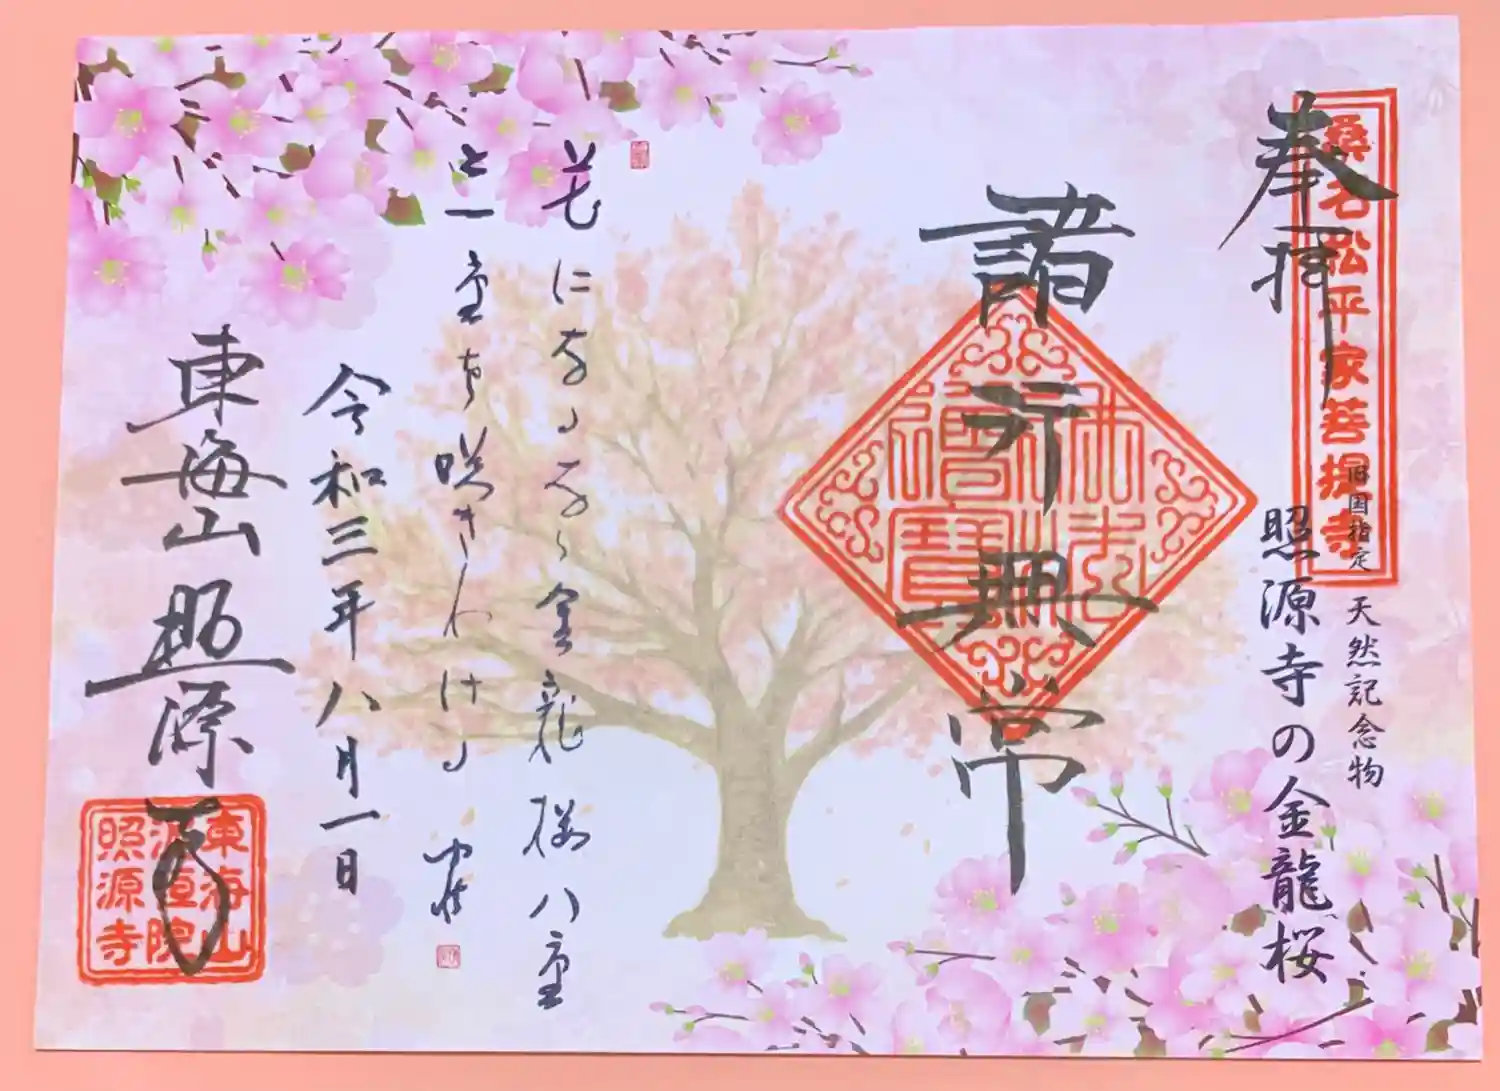 桑名松平家菩提寺
奉拝
旧国指定 天然記念物
照源寺の金龍桜
諸行無常
花になるなら金龍桜八重
と一重を咲きわける
令和三年八月一日
東海山照源寺
東海山
泥洹院
照源寺